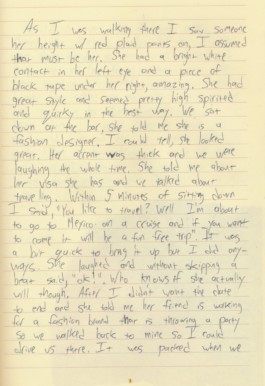 As I was walking there I saw someone
her height w/ red plaid pants on, I assumed
that must be her. She had a bright white
contact in her left eye and a piece of
black tape under her right, amazing. She had
great style and seemed pretty high spirited
and quirky in the best way. We sat
down at the bar, she told me she is a
fashion designer, I could tell, she looked
great. Her accent was thick and we were
laughing the whole time. She told me about
her visa she has and we talked about
traveling. Within 5 minutes of sitting down
I said, "You like to travel? Well I'm about
to go to Mexico on a cruise and if you want
to come it will be a fun free trip". It was
a bit quick to bring it up but I did any-
ways. She laughed and without skipping a
beat said, ok!". Who knows if she actually
will though. After I didn't want the date
to end and she told me her friend is working
for a fashion brand that is throwing a party
so we walked back to mine so I could
drive us there. It was packed when we